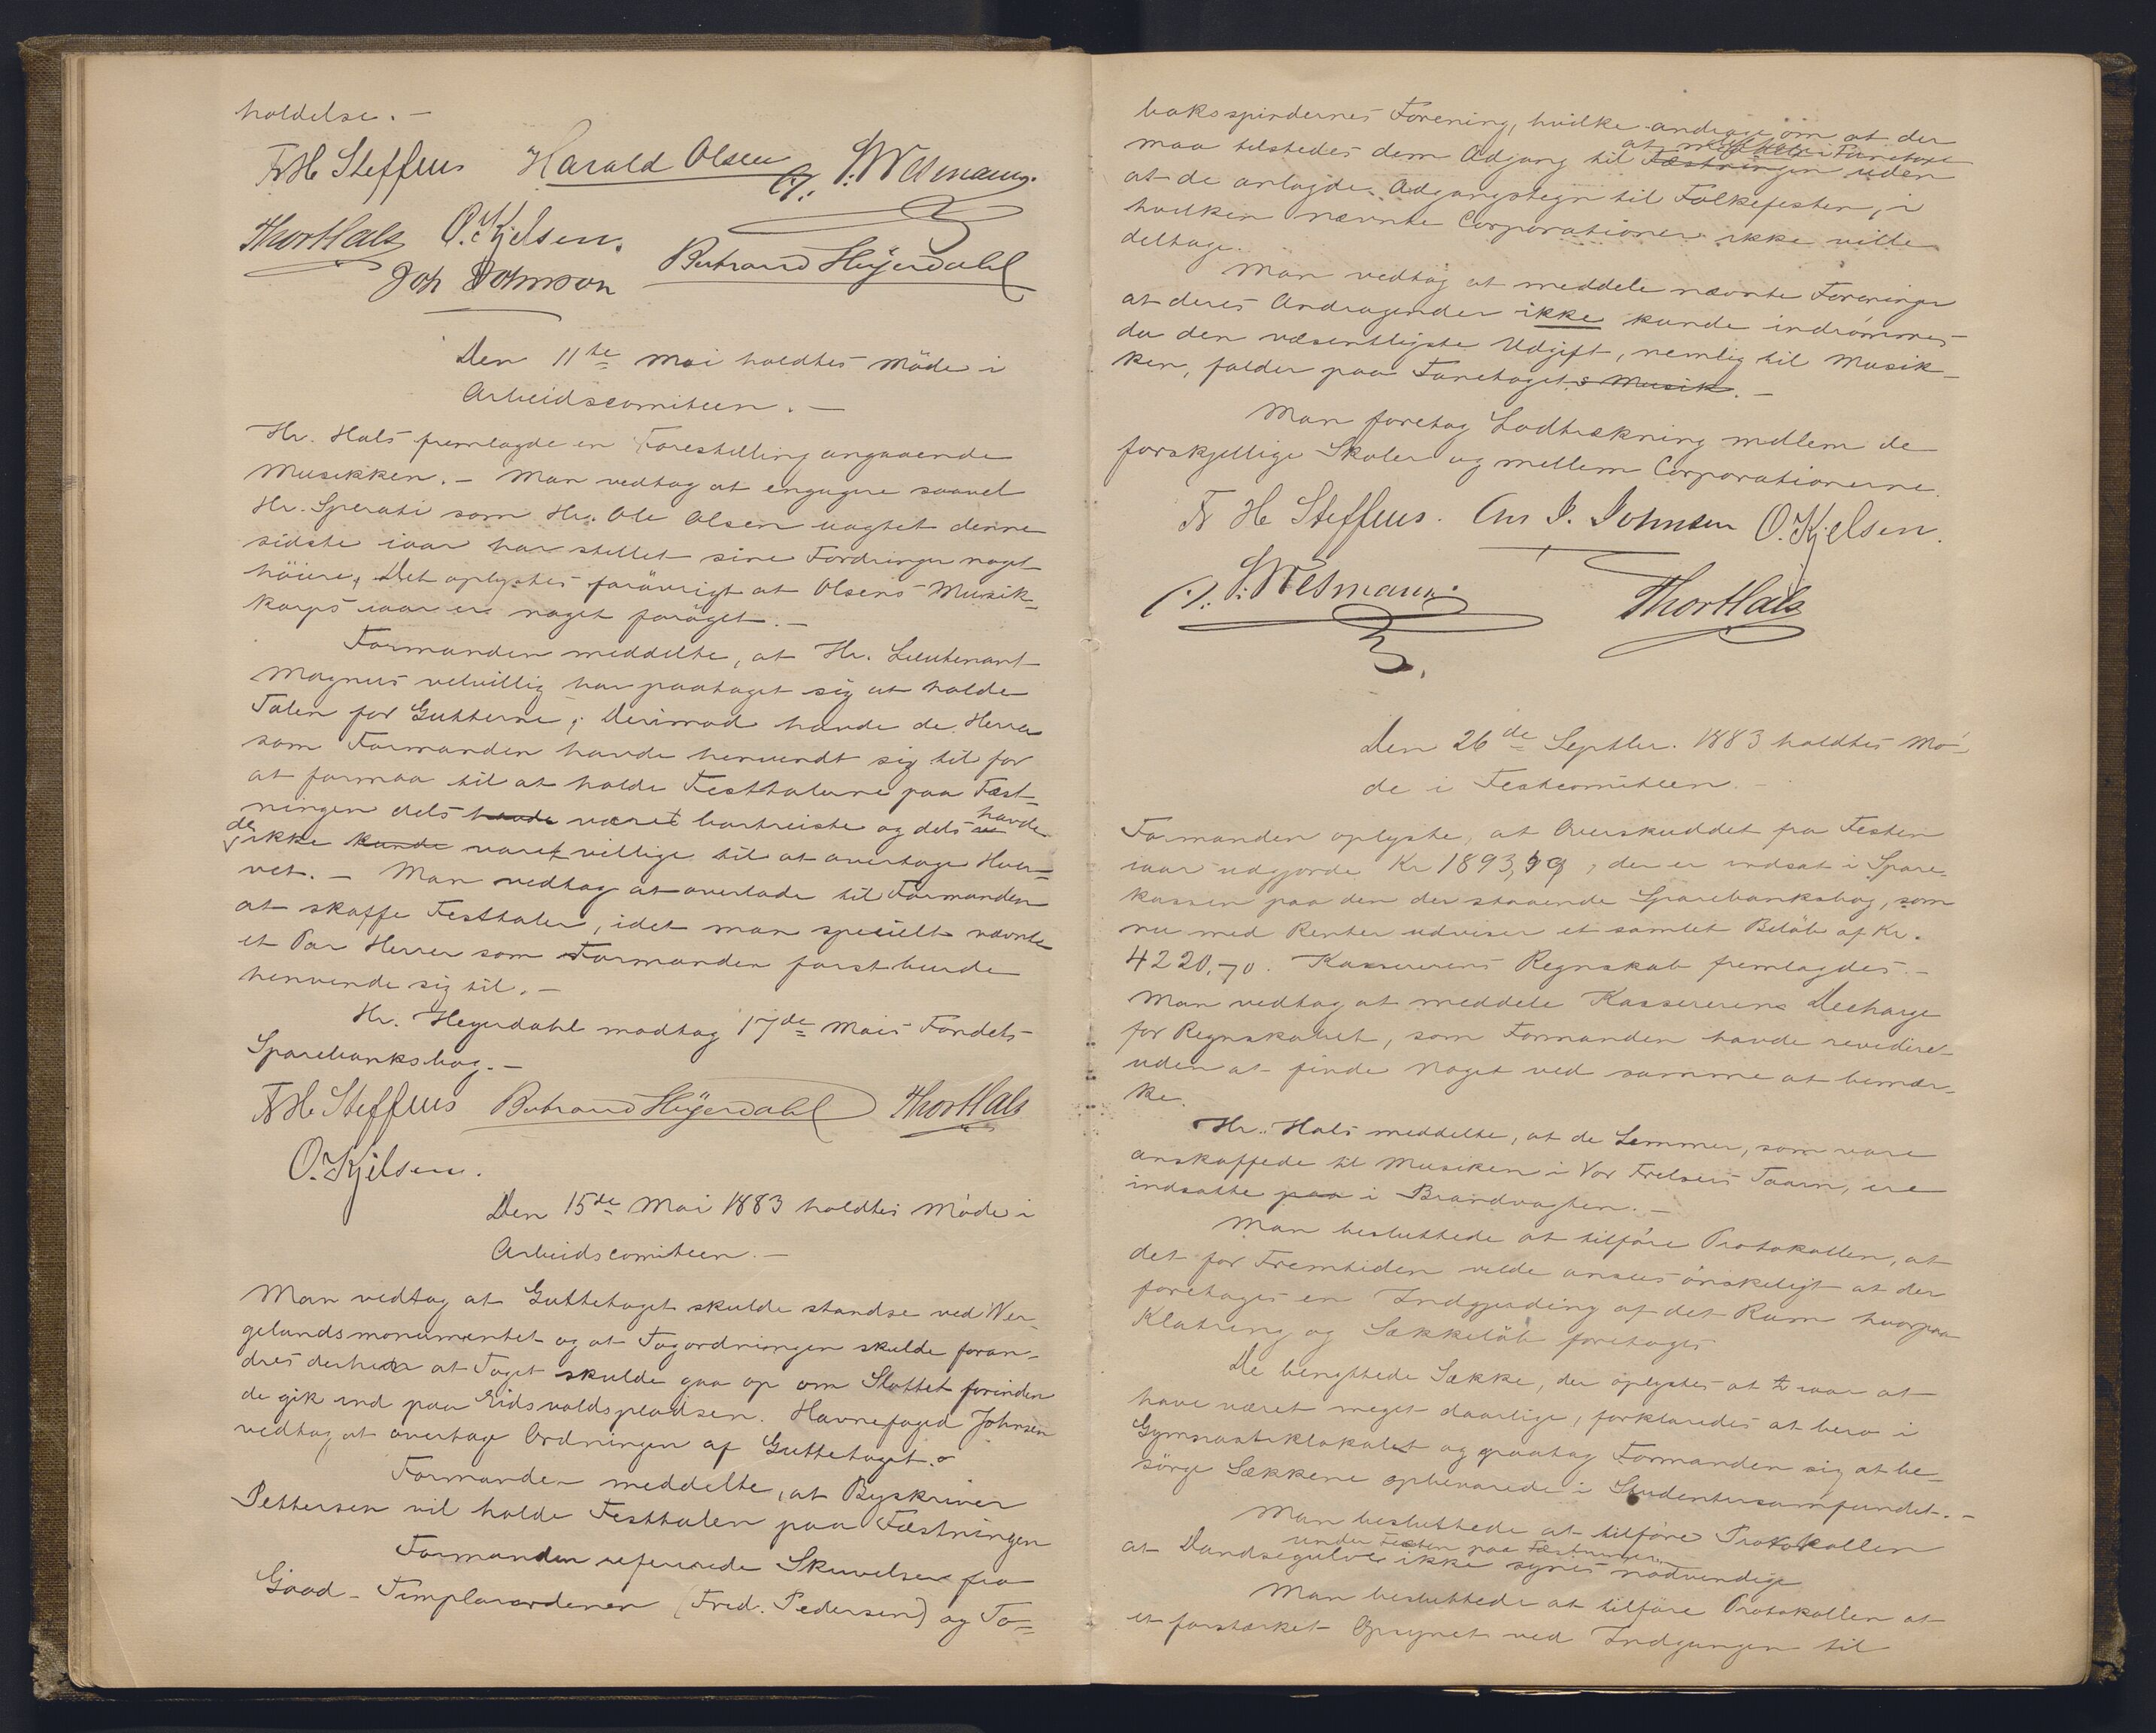 holdelse. —
Fr H Steffens Harald Olsen
Thor Hals O. Kjelsen.
Joh Johnson Bertrand Heyerdahl
Den 11te Mai holdtes Möde i
Arbeidscomiteen. —
Hr. Hals fremlagde en Forestilling angaaende
Musikken. — Man vedtog at engagere saavel
Hr. Sperati som Hr. Ole Olsen uagtet denne
sidste iaar har stillet sine Fordringer noget
höiere, Det oplystes forövrigt at Olsens Musik-
korps iaar er noget foröget. —
Formanden meddelte, at Hr. Lieutenant
Magnus velvillig har paataget sig at holde
Talen for Gutterne; Derimod havde de Herrer
som Formanden havde henvendt sig til for
at formaa til at holde Festtalerne paa Fæst-
ningen dels havde været bortreiste og dels havde
de ikke kunde været villige til at overtage Hver-
vet. — Man vedtog at overlade til Formanden
at skaffe Festtaler, idet man specielt nævnte
et Par Herrer som Formanden först burde
henvende sig til. —
Hr. Heyerdahl modtog 17de Mais Fondets
Sparebanksbog. —
Fr H Steffens Bertrand Heyerdahl Thor Hals
O. Kjelsen.
Den 15de Mai 1883 holdtes Möde i
Arbeidscomiteen. —
Man vedtog at Guttetoget skulde standse ved Wer-
gelandsmonumentet og at Togordningen skulde foran-
dres derhen at Toget skulde gaa op om Slottet forinden
de gik ind paa Eidsvoldspladsen. Havnefoged Johnsen
vedtog at overtage Ordningen af Guttetoget. —
Formanden meddelte, at Byskriver
Pettersen vil holde Festtalen paa Fæstningen
Formanden refererede Skrivelser fra
Good-Templarordenen (Fred. Pedersen) og To-
baksspindernes Forening, hvilke androge om at der
maa tilstedes dem Adgang til Fæstningen uden
at de anlagde Adgangstegn til Folkefesten, i
hvilken nævnte Corporationer ikke ville
deltage.
Man vedtog at meddele nævnte Foreninger
at deres Andragender ikke kunde indrömmes
da den væsentligste Udgift, nemlig til Musik-
ken, falder paa Fanetoget s Musik. —
Man foretog Lodtrækning mellem de
forskjellige Skoler og mellem Corporationerne.
Fr H Steffens. Chr J. Johnsen O. Kjelsen.
Thor Hals
Den 26de Septber. 1883 holdtes Mö-
de i Festcomiteen. —
Formanden oplyste, at Overskuddet fra Festen
iaar udgjorde Kr 1893,59, der er indsat i Spare-
kassen paa den der staaende Sparebanksbog, som
nu med Renter udviser et samlet Belöb af Kr.
4220,70. Kassererens Regnskab fremlagdes. —
Man vedtog at meddele Kassereren Decharge
for Regnskabet, som Formanden havde revideret
uden at finde Noget ved samme at bemær-
ke.
Hr. Hals meddelte, at de Lemmer, som vare
anskaffede til Musiken i Vor Frelsers Taarn, ere
indsatte paa i Brandvagten. —
Man besluttede at tilföre Protokollen, at
det for Fremtiden vilde ansees önskeligt at der
foretages en Indgjerding af det Rum hvorpaa
Klatring og Sækkelöb foretages
De benyttede Sække, der oplystes at iaar at
have været meget daarlige, forklaredes at bero i
Gymnastiklokalet og paatog Formanden sig at be-
sörge Sækkene opbevarede i Studentersamfundet. —
Man besluttede at tilföre Protokollen
under Festen paa Fæstningen
at Dandsegulve ikke synes nödvendige
Man besluttede at tilföre Protokollen at
et forstærket Opsynet ved Indgangen til